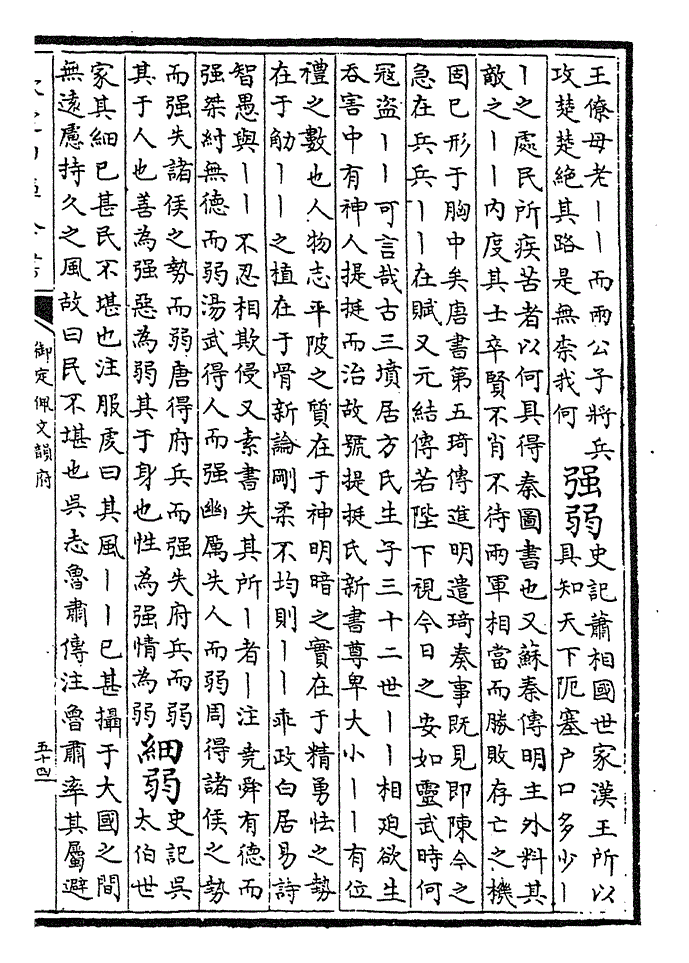 王僚母老丨丨而兩公子將兵
攻楚楚絕其路是無柰我何
强弱
史記蕭相國世家漢王所以
具知天下阨塞户口多少丨
丨之處民所疾苦者以何具得秦圖書也又蘇秦傳明主外料其
敵之丨丨內度其士卒賢不肖不待兩軍相當而勝敗存亡之機
固已形于胸中矣唐書第五琦傳進明遣琦奏事既見即陳今之
急在兵兵丨丨在賦又元結傳若陛下視今日之安如靈武時何
寇盜丨丨可言哉古三墳居方氏生子三十二世丨丨相廹欲生
吞害中有神人提挺而治故號提挺氏新書尊卑大小丨丨有位
禮之數也人物志平陂之質在于神明暗之實在于精勇怯之勢
在于觔丨丨之植在于骨新論剛柔不均則丨丨乖政白居易詩
智愚與丨丨不忍相欺侵又素書失其所丨者丨注堯舜有德而
强桀紂無德而弱湯武得人而强幽厲失人而弱周得諸侯之勢
而强失諸侯之勢而弱唐得府兵而强失府兵而弱
其于人也善為强惡為弱其于身也性為强情為弱
細弱
史記吳
太伯世
家其細已甚民不堪也注服虔曰其風丨丨已甚攝于大國之間
無遠慮持久之風故曰民不堪也吳志魯肅傳注魯肅率其屬避
御定佩文韻府
五十四